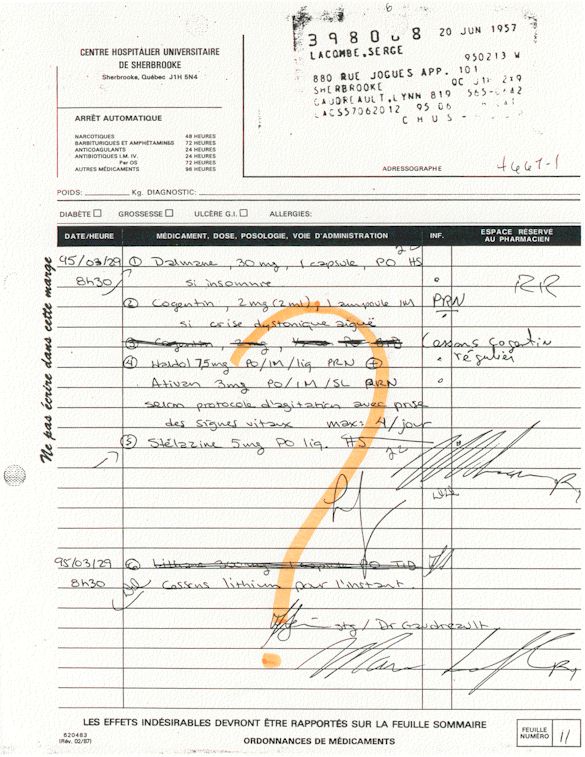 CENTRE HOSPITALIER UNIVERSITAIRE
DE SHERBROOKE
Sherbrooke, Québec J1H 5N4
398088 20 JUN 1957
LACOMBE,SERGE
950213 W
880 RUE JOGUES APP. 101
SHERBROOKE QC J1H
GAUDREAULT,LYNN 819 565-
LACS57062012 95 06
C H U S
ARRÊT AUTOMATIQUE
NARCOTIQUES 48 HEURES
BARBITURIQUES ET AMPHÉTAMINES 72 HEURES
ANTICOAGULANTS 24 HEURES
ANTIBIOTIQUES I.M. IV. 24 HEURES
Per OS 72 HEURES
AUTRES MÉDICAMENTS 96 HEURES
ADRESSOGRAPHE
4667-1
POIDS: Kg. DIAGNOSTIC:
DIABÈTE GROSSESSE ULCÈRE G.I. ALLERGIES:
DATE/HEURE MÉDICAMENT, DOSE, POSOLOGIE, VOIE D'ADMINISTRATION INF. ESPACE RÉSERVÉ AU PHARMACIEN
Ne pas écrire dans cette marge
95/03/29 ① Dalmane, 30 mg, 1 capsule, PO HS 22
8h30 si insomnie RR
② Cogentin, 2mg (2ml), 1 ampoule IM PRN
si crise dystonique aiguë
③ Cogentin, 2mg, PO Cessons Cogentin
④ Haldol 7.5mg PO/IM/liq PRN + régulier
Ativan 3mg PO/IM/SL PRN
selon protocole d'agitation avec prise
des signes vitaux max: 4/jour
⑤ Stélazine 5mg PO liq. HS 22
?
95/03/29 ⑥ Lithane 300 mg 1 caps PO TID
8h30 Cessons lithium pour l'instant.
stg/Dr Gaudreault
LES EFFETS INDÉSIRABLES DEVRONT ÊTRE RAPPORTÉS SUR LA FEUILLE SOMMAIRE
620483
(Rév. 02/87)
ORDONNANCES DE MÉDICAMENTS
FEUILLE NUMÉRO 11